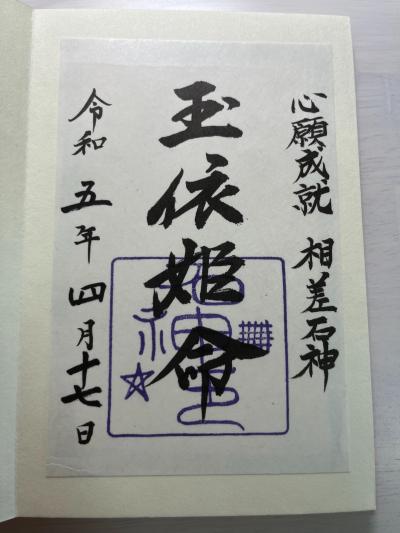 心願成就 相差石神
玉依姫命
令和五年四月十七日